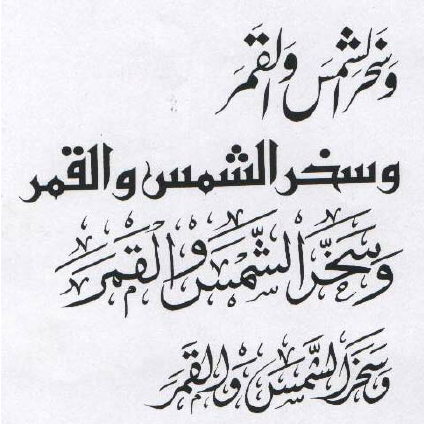 وسخر الشمس والقمر
وسخر الشمس والقمر
وَسَخَّرَ الشَّمْسَ وَالْقَمَرَ
وَسَخَّرَ الشَّمْسَ وَالْقَمَرَ